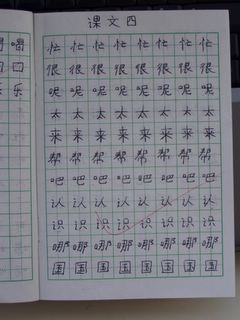 课文四
忙忙忙忙忙忙忙忙
很很很很很很很很
呢呢呢呢呢呢呢呢
太太太太太太太太
来来来来来来来来
帮帮帮帮帮帮帮帮
吧吧吧吧吧吧吧吧
认认认认认认认认
识识识识识识识识
哪哪哪哪哪哪哪哪
国国国国国国国国
喝
回
乐